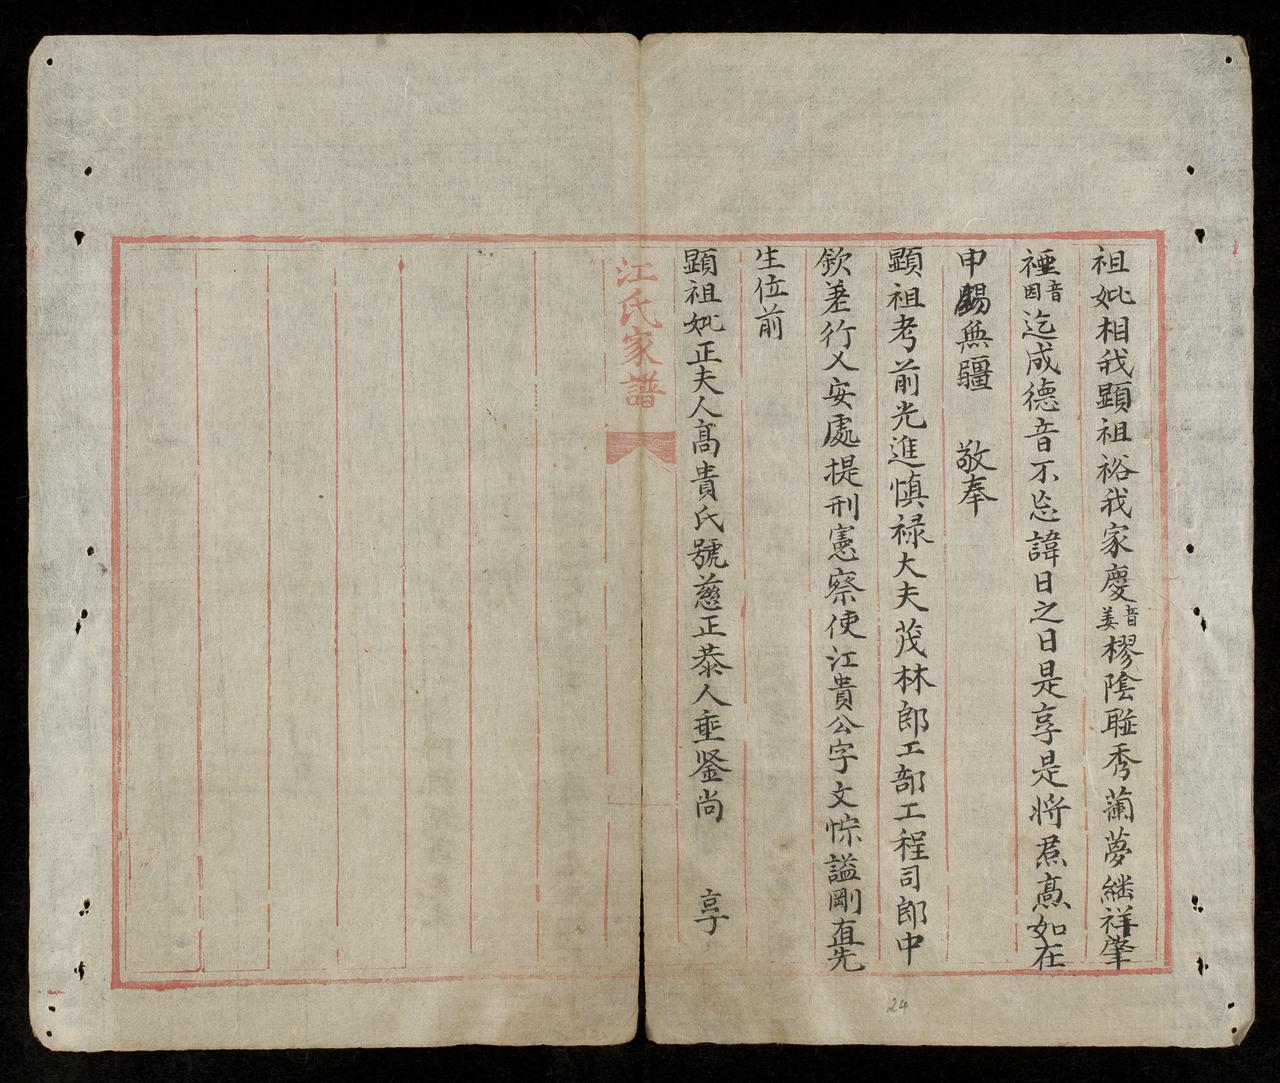 祖妣相我顕祖裕我家慶音姜樛陰聮秀蘭夢継祥肇
禋音因迄成德音不忘諱日之日是享是将焄髙如在
申錫無疆 敬奉
顕祖考前光進慎禄大夫茂林郎工部工程司郎中
欽差行乂安處提刑憲察使江貴公字文悰謚剛直先
生位前
顕祖妣正夫人髙貴氏號慈正恭人垂鉴尚 享
江氏家譜
24